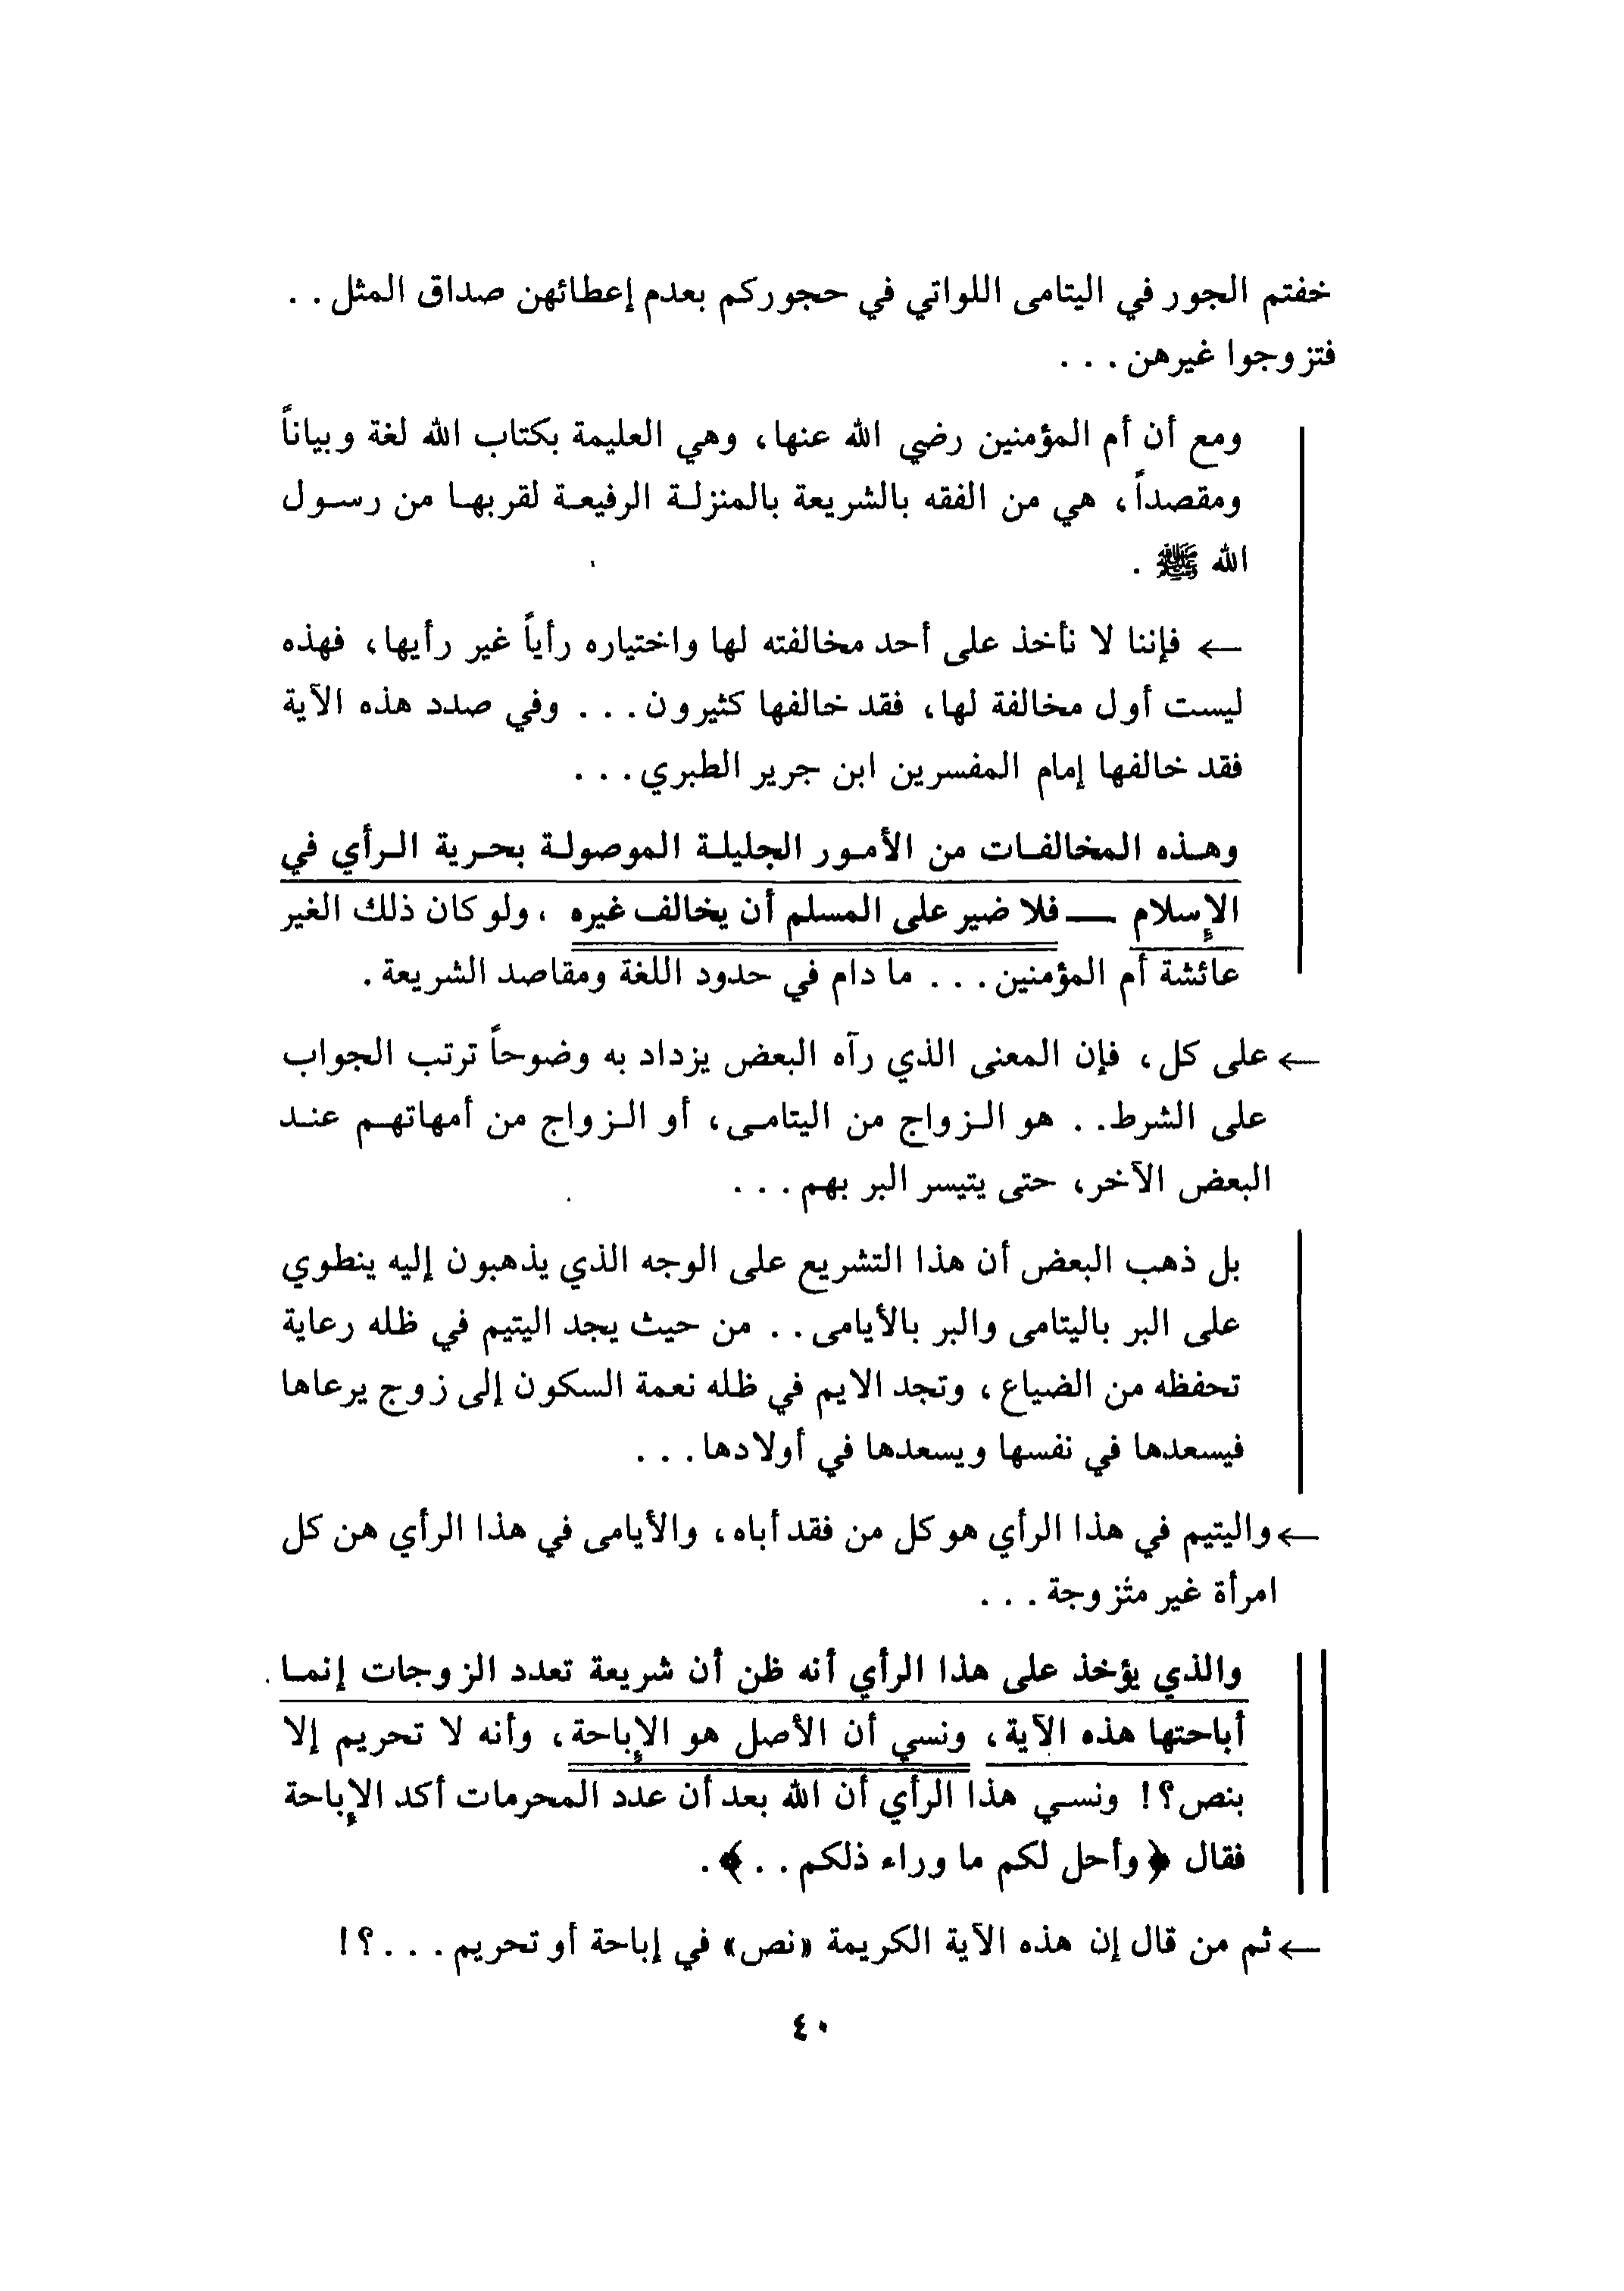 خفتم الجور في اليتامى اللواتي في حجوركم بعدم إعطائهن صداق المثل . .
فتزوجوا غيرهن . . .
ومع أن أم المؤمنين رضي الله عنها، وهي العليمة بكتاب الله لغة وبياناً
ومقصداً، هي من الفقه بالشريعة بالمنزلة الرفيعة لقربها من رسول
الله ﷺ .
← فإننا لا نأخذ على أحد مخالفته لها واختياره رأياً غير رأيها، فهذه
ليست أول مخالفة لها، فقد خالفها كثيرون . . . وفي صدد هذه الآية
فقد خالفها إمام المفسرين ابن جرير الطبري . . .
وهذه المخالفات من الأمور الجليلة الموصولة بحرية الرأي في
الإسلام — فلا ضير على المسلم أن يخالف غيره ، ولو كان ذلك الغير
عائشة أم المؤمنين . . . ما دام في حدود اللغة ومقاصد الشريعة .
← على كل، فإن المعنى الذي رآه البعض يزداد به وضوحاً ترتب الجواب
على الشرط . . هو الزواج من اليتامى، أو الزواج من أمهاتهم عند
البعض الآخر، حتى يتيسر البر بهم . . .
بل ذهب البعض أن هذا التشريع على الوجه الذي يذهبون إليه ينطوي
على البر باليتامى والبر بالأيامى . . من حيث يجد اليتيم في ظله رعاية
تحفظه من الضياع، وتجد الايم في ظله نعمة السكون إلى زوج يرعاها
فيسعدها في نفسها ويسعدها في أولادها . . .
← واليتيم في هذا الرأي هو كل من فقد أباه، والأيامى في هذا الرأي هن كل
امرأة غير متزوجة . . .
والذي يؤخذ على هذا الرأي أنه ظن أن شريعة تعدد الزوجات إنما
أباحتها هذه الآية، ونسي أن الأصل هو الإباحة، وأنه لا تحريم إلا
بنص؟! ونسي هذا الرأي أن الله بعد أن عدد المحرمات أكد الإباحة
فقال ﴿وأحل لكم ما وراء ذلكم . .﴾ .
← ثم من قال إن هذه الآية الكريمة «نص» في إباحة أو تحريم . . . ؟!
٤٠